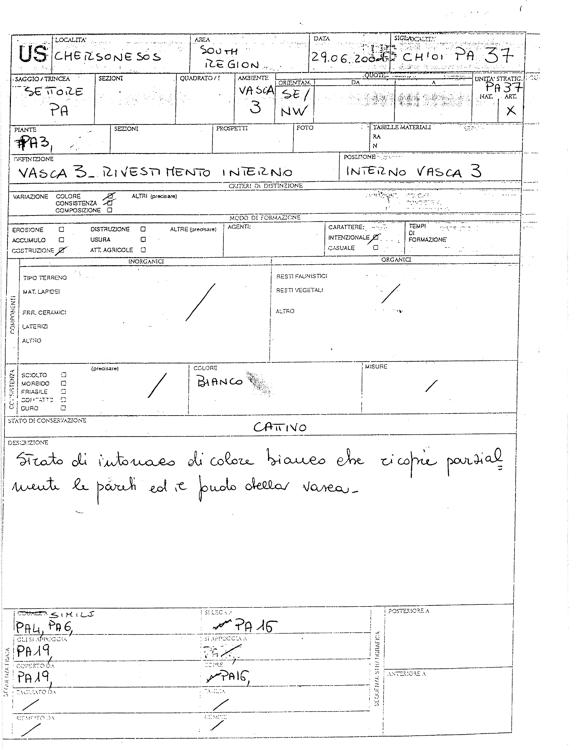 US
LOCALITA'
CHERSONESOS
AREA
SOUTH
REGION
DATA
29.06.200
SIGLA
CH'01 PA 37
SAGGIO/TRINCEA
SETTORE
PA
SEZIONI
QUADRATO/I
AMBIENTE
VASCA
3
ORIENTAM.
SE/
NW
QUOTE
DA
A
UNITA' STRATIG.
PA37
NAT. ART.
X
PIANTE
PA3,
SEZIONI
PROSPETTI
FOTO
TABELLE MATERIALI
RA
N
DEFINIZIONE
VASCA 3_ RIVESTIMENTO INTERNO
POSIZIONE
INTERNO VASCA 3
CRITERI DI DISTINZIONE
VARIAZIONE COLORE
CONSISTENZA
COMPOSIZIONE
ALTRI (precisare)
MODO DI FORMAZIONE
EROSIONE
ACCUMULO
COSTRUZIONE
DISTRUZIONE
USURA
ATT. AGRICOLE
ALTRE (precisare)
AGENTI:
CARATTERE:
INTENZIONALE
CASUALE
TEMPI
DI
FORMAZIONE
COMPONENTI
INORGANICI
TIPO TERRENO
MAT. LAPIDEI
FRR. CERAMICI
LATERIZI
ALTRO
ORGANICI
RESTI FAUNISTICI
RESTI VEGETALI
ALTRO
CONSISTENZA
SCIOLTO
MORBIDO
FRIABILE
COMPATTO
DURO
(precisare)
COLORE
BIANCO
MISURE
STATO DI CONSERVAZIONE
CATTIVO
DESCRIZIONE
Strato di intonaco di colore bianco che ricopre parzial=
mente le pareti ed il fondo della vasca_
SIMILE
PA4, PA6,
SI LEGA A
PA 16
GLI SI APPOGGIA
PA19,
SI APPOGGIA A
COPERTO DA
PA19,
COPRE
PA16,
TAGLIATO DA
TAGLIA
RIEMPITO DA
RIEMPIE
SEQUENZA STRATIGRAFICA
POSTERIORE A
ANTERIORE A